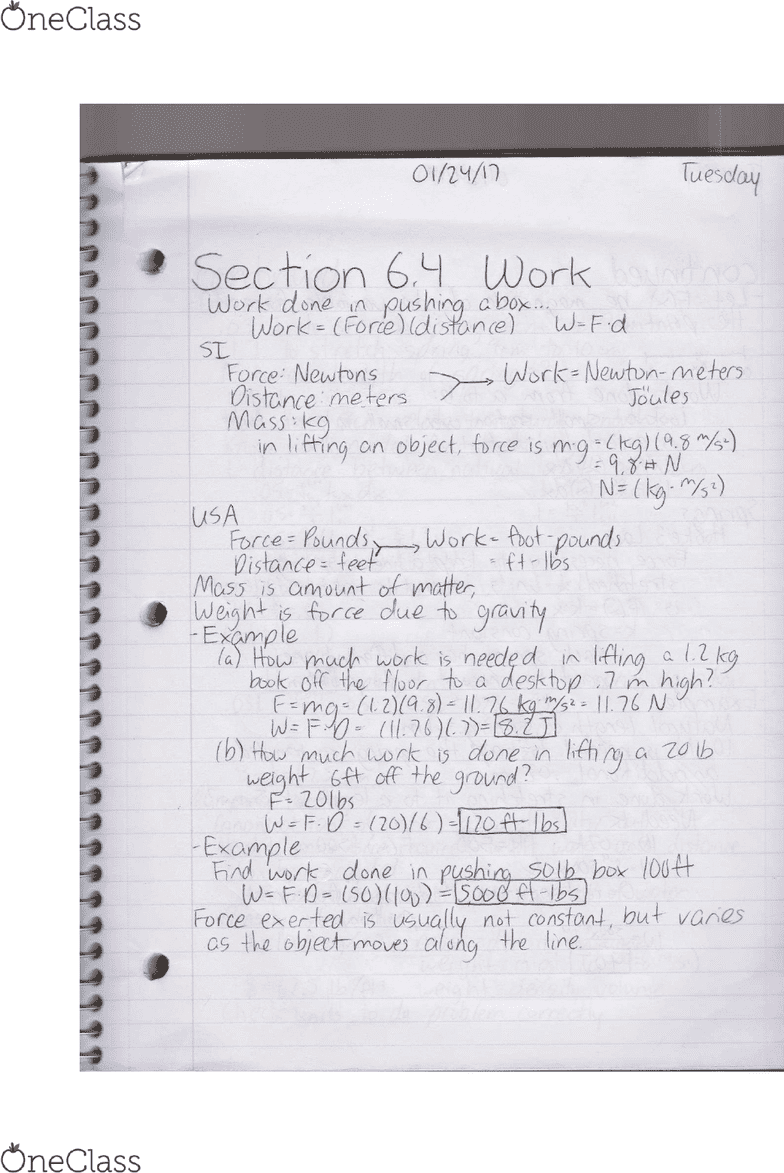 OneClass
01/24/17 Tuesday
Section 6.4 Work
Work done in pushing a box...
Work = (Force)(distance) W=F·d
SI
Force: Newtons → Work = Newton-meters
Distance: meters Joules
Mass: kg
in lifting an object, force is m·g = (kg)(9.8 m/s²)
= 9.8 N
N = (kg · m/s²)
USA
Force = Pounds → Work = foot-pounds
Distance = feet = ft-lbs
Mass is amount of matter,
Weight is force due to gravity
-Example
(a) How much work is needed in lifting a 1.2 kg
book off the floor to a desktop .7 m high?
F = mg = (1.2)(9.8) = 11.76 kg·m/s² = 11.76 N
W = F·D = (11.76)(.7) = 8.2 J
(b) How much work is done in lifting a 20 lb
weight 6ft off the ground?
F = 20lbs
W = F·D = (20)(6) = 120 ft-lbs
-Example
Find work done in pushing 50lb box 100ft
W = F·D = (50)(100) = 5000 ft-lbs
Force exerted is usually not constant, but varies
as the object moves along the line.
OneClass